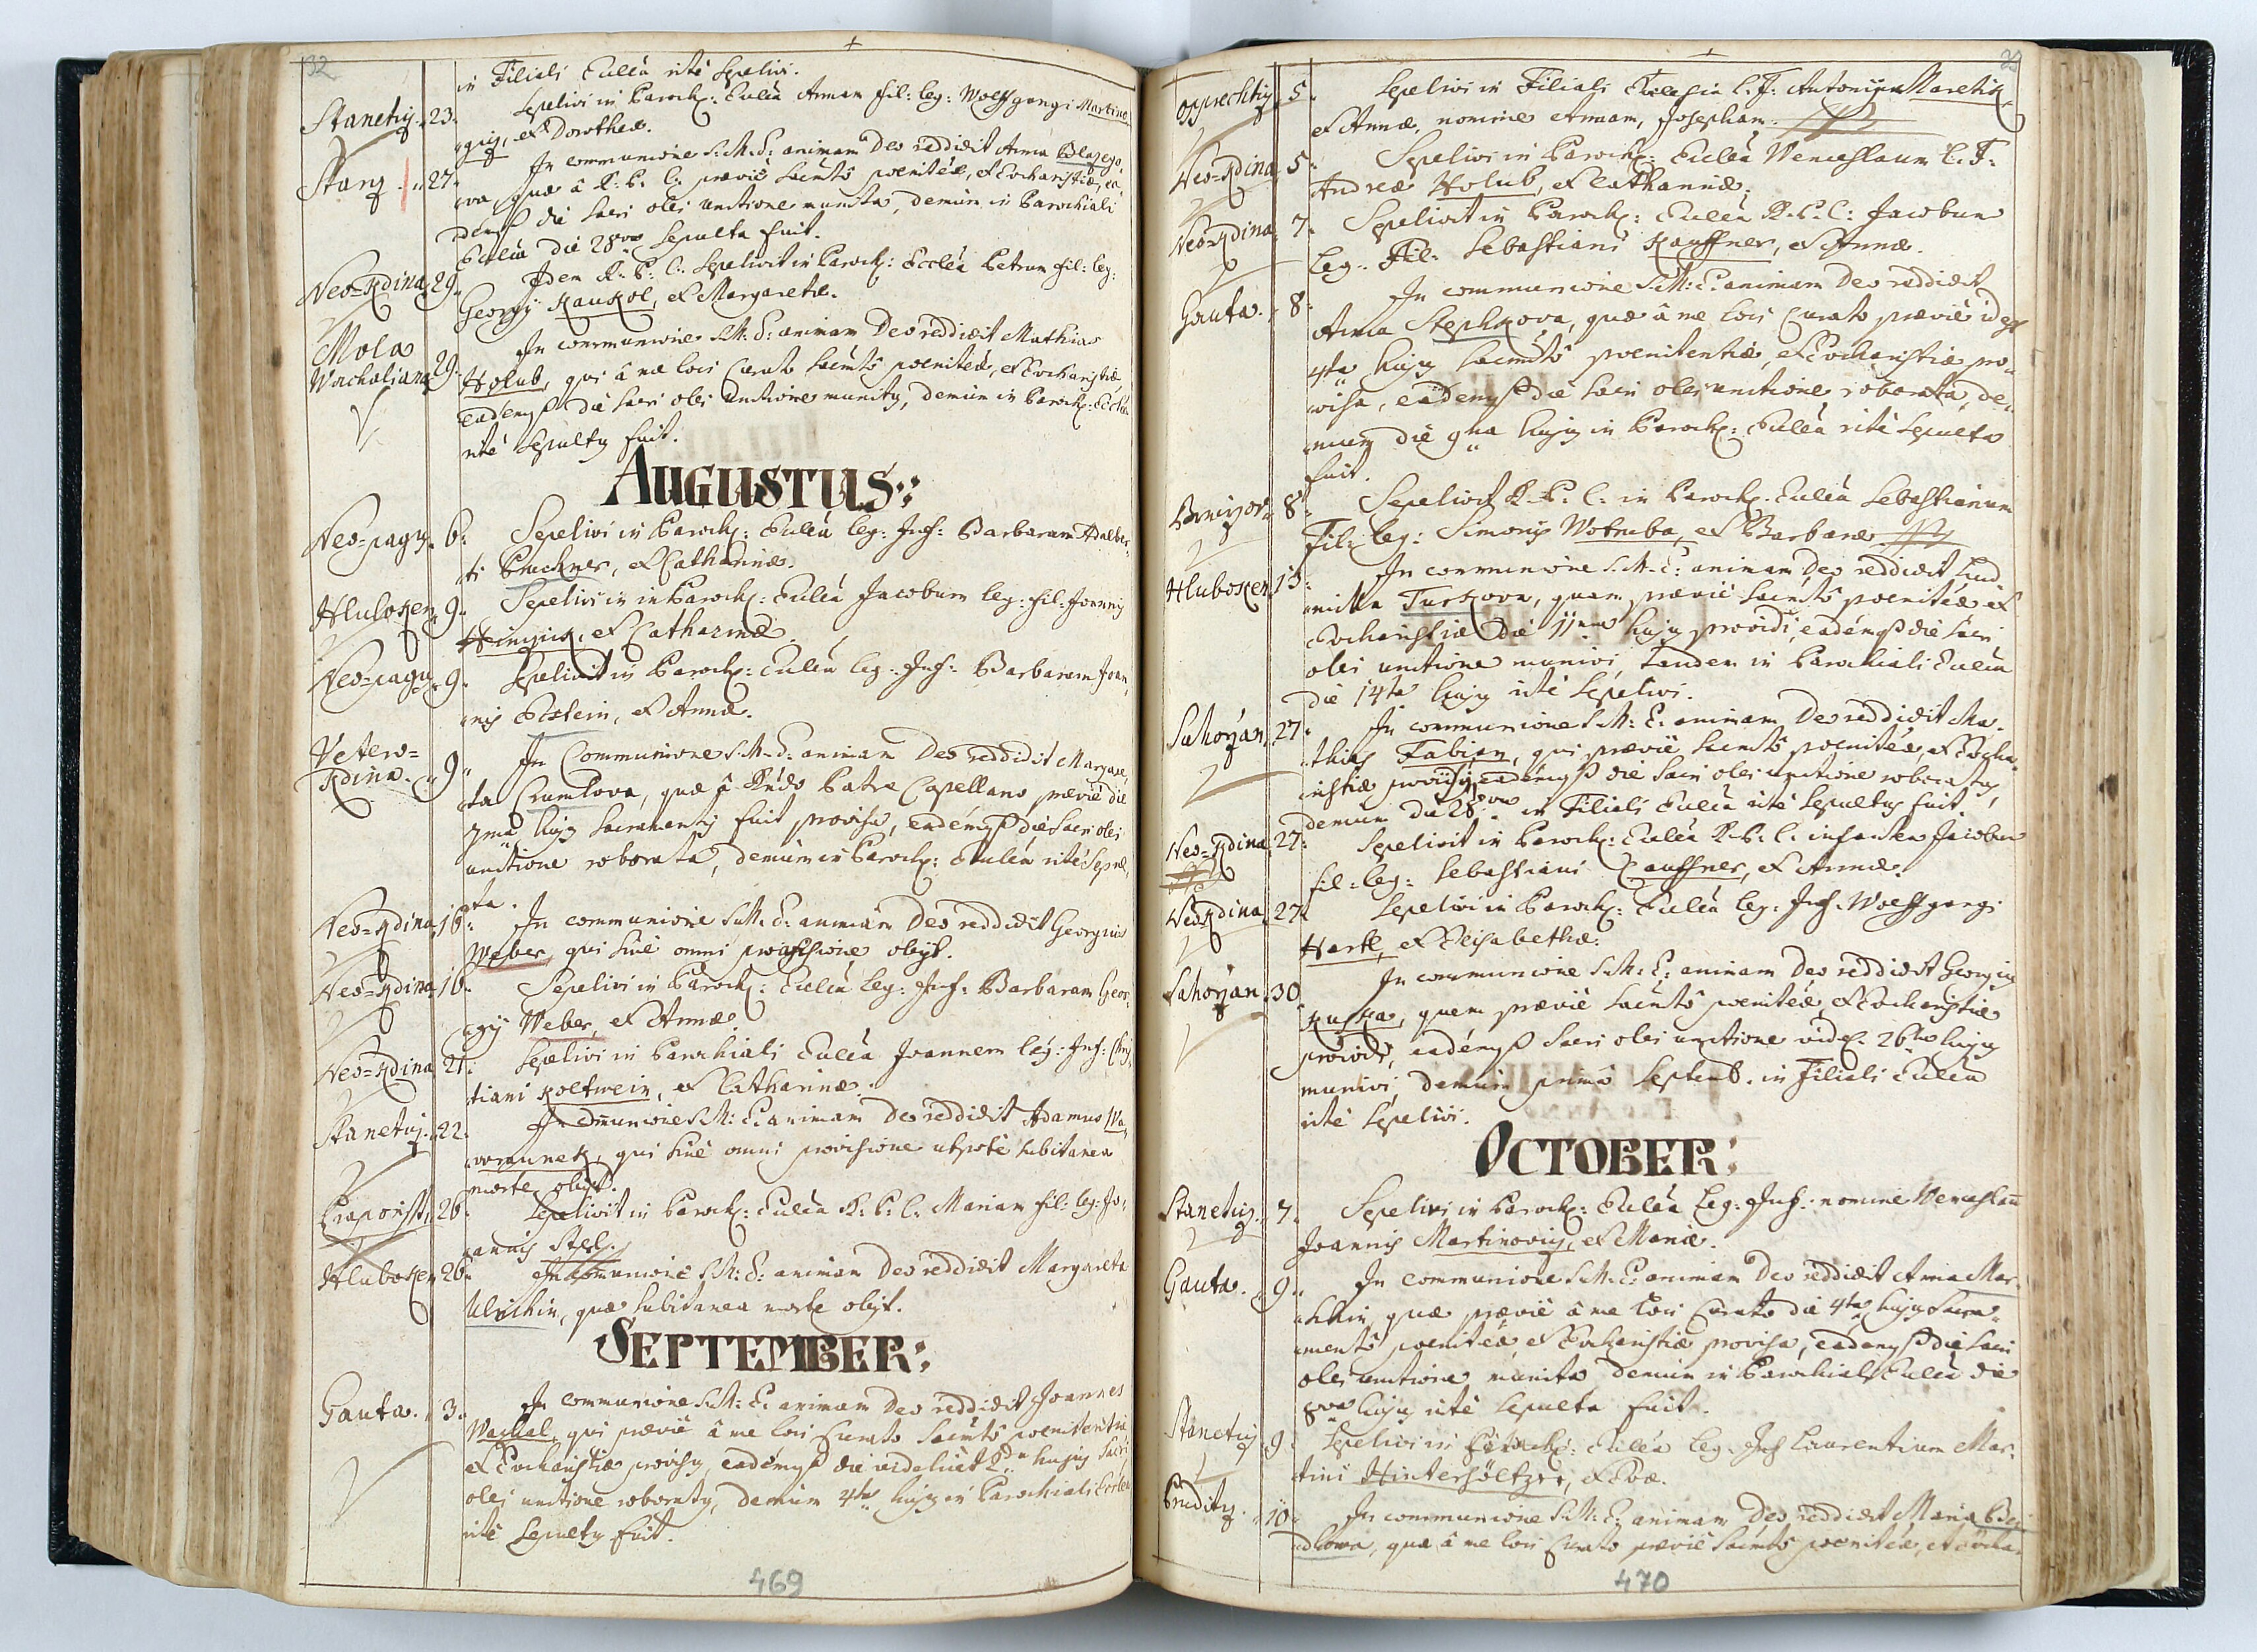 32
in Filiali Eccłia rité Sepelivi.
Stanetig. 23. Sepelivi in Paroch: Eccłia Annam fil: leg: Wolffgangi Martino
et Dorotheæ.
Stang 27. In communione S: M: E: animam Deo reddidit Anna Blazego
va, quæ â R: P: C: prævié Sacmtô pœnitéæ, et Eucharistiæ, ea
die Sacri olei unctione munita, demùm in Parochiali
Eccłia die 28va Sepulta fuit.
Neo=Kdina 29. Idem R: P: C: Sepelivit in Paroch: Eccléa Petrum fil: leg:
Georgÿ Kaukol, et Margaretæ.
Mola
Wachaliana 29. In communione S: M: E: animam Deo reddidit Mathias
Holub, qui â me loci Curato Sacmtô pœnitéæ, et Eucharistiæ
eadémq die Sacri olei unctione munitg, demùm in Paroch: Eccłia
rité Sepultg fuit.
AUGUSTUS:
Neo=pagg. 6. Sepelivi in Paroch: Eccłia leg: Inf: Barbaram Adalber
ti Pruckner, et Catharinæ.
Hluboken 9. Sepelivi in Paroch: Eccłia Jacobum leg: fil: Joannis
et Catharinæ.
Neo=pagg 9. Sepelivit in Paroch: Eccłia leg: Inf: Barbaram Joan
nis Ecstein, et Annæ.
Vetero=
Kdina. 9. In Communione S: M: E: animam Deo reddidit Margare
ta Crumlova, quæ â Rńdo Patre Capellano prævié die
7ma hujg Sacramentis fuit provisa, eadémq die Sacri olei
unctione roborata, demùm in Paroch: Eccłia rité Sepul
ta.
Neo=Kdina 16. In communione S: M: E: animam Deo reddidit Georgius
Weber, qui siné omni provisione obijt.
Neo=Kdina 16. Sepelivi in Paroch: Eccłia leg: Inf: Barbaram Geor
gÿ Weber, et Annæ
Neo=Kdina 21. Sepelivi in Parochiali Eccłia Joannem leg: Inf: Chris
tiani Koltwein, et Catharinæ.
Stanetig. 22. In communione S: M: E: animam Deo reddidit Adamus Wa
wraunek, qui siné omni provisione utpoté subitanea
morte obijt.
26. Sepelivit in Paroch: Eccłia R: P: C: Mariam fil: leg: Jo
annis
Hluboken 26. In communione S: M: E: animam Deo reddidit Margareta
Ulrichin, quæ subitanea morte obijt.
SEPTEMBER:
Gauta. 3. In communione S: M: E: animam Deo reddidit Joannes
Wachal, qui prævié â me loci Curato Sacmtô pœnitentiæ
et Eucharistiæ provisg, eadémq die videlicet 2da hujus Sacri
olei unctione roboratg, demùm 4ta hujg in Parochiali Eccłia
rité Sepultg fuit.
469
Opprechtig 5. Sepelivi in Filiali Ecclesia L: F: Antonÿ Maretik,
et Annæ, nomine Annam, Josepham.
Neo=Kdina 5. Sepelivi in Paroch: Eccłia Wenceslaum L: F:
Andreæ Holub, et Catharinæ.
Neo=Kdina 7. Sepelivit in Paroch: Eccłia R: P: C: Jacobum
leg: Fil: Sebastiani Kauffner, et Annæ.
Gauta. 8. In communione S: M: E: animam Deo reddidit
Anna Stephkova, quæ â me loci Curato prævié
4ta hujg Sacmtô pœnitentiæ, et Eucharistiæ pro
visa, eadémq die Sacri olei unctione roborata, de
mum die 9na hujg in Paroch: Eccłia rité Sepulta
fuit.
8. Sepelivit R: P: C: in Paroch: Eccłia Sebastianum
Fil: leg: Simonis Wotruba, et Barbaræ
Hluboken 13. In communione S: M: E: animam Deo reddidit Lud
milla Turkova, quam prævié Sacmtô pœnitéæ et
Eucharistiæ die 11ma hujg providi, eadémq die Sacri
olei unctione munivi, tandem in Parochiali Eccłia
die 14ta hujg rité Sepelivi.
Sahorjan 27. In communione S: M: E: animam Deo reddidit Ma
thias Fabian, qui prævié Sacmtô pœnitéæ, et Eucha
ristiæ provisg, eadémq die Sacri olei unctione roboratg,
demùm die 28va in Filiali Eccłia rité Sepultus fuit.
Neo=Kdina 27. Sepelivit in Paroch: Eccłia R: P: C: infantem Jacobum
fil: leg: Sebastiani Cauffner, et Annæ.
Neo=Kdina 27. Sepelivi in Paroch: Eccłia leg: Inf: Wolffgangi
Hartl, et Elisabethæ.
Sahorjan 30. In communione S: M: E: animam Deo reddidit Georgig
Kuska, quem prævié Sacmtô pœnitéæ, et Eucharistiæ
providi, eadémq Sacri olei unctione 26ta hujg
munivi, demùm primâ Septemb. in Filiali Eccłia
rité Sepelivi.
OCTOBER:
Stanetig. 7. Sepelivi in Paroch: Eccłia Leg: Inf: nomine Wenceslaũ
Joannis Martinovig, et Mariæ.
Gauta. 9. In communione S: M: E: animam Deo reddidit Anna Mar
quæ prævié â me loci Curato die 4ta hujg Sacra
mentô pœnitéæ, et Eucharistiæ provisa, eadémq die Sacri
olei unctione munita demùm in Parochiali Eccłia die
hujg rité Sepulta fuit.
Stanetig 9. Sepelivi in Paroch: Eccłia leg: Inf Laurentium Mar
tini Hinterholtzer, et Evæ.
10. In communione S: M: E: animam Deo reddidit Maria
quæ â me loci Curato prævié Sacmtô pœnitéæ, et Eucha
470